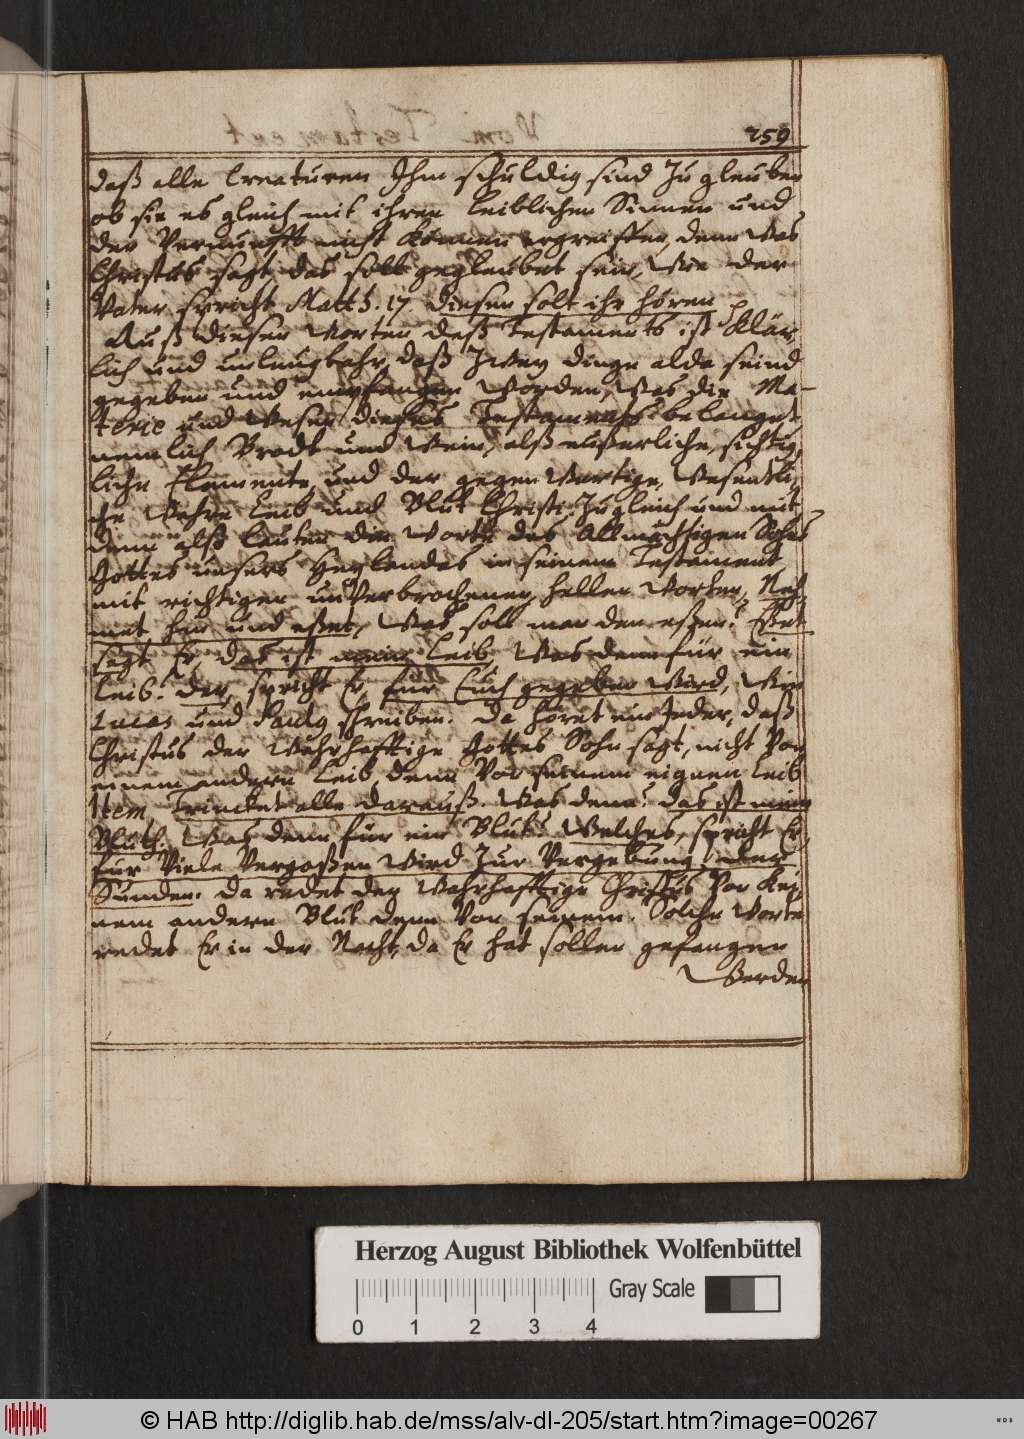 259
daß alle Creaturen Ihm schuldig sind Zu gleuben
ob sie es gleich mit ihren leiblichen Sinnen und
der Vernunfft nicht können ergreiffen, denn Was
Christus sagt das soll gegleubet sein, Wie der
Vater spricht Matth. 17. diesen solt ihr hören
Auß diesen Worten deß Testaments ist Klär,
lich und unleugbahr, daß Zwey dinge alda seind
gegeben und empfangen Worden, Was die Ma-
terie und Wesen dieses Testaments belanget
nemlich Brodt und Wein, alß eußerliche, sichtig,
liche Elemente, und der gegenWertige, Wesentli,
che Wahre Leib und Blut Christi Zugleich und mit,
denn also lauten die Worte des Allmächtigen Sohns
Gottes unsers Heylandes in seinem Testament
mit richtigen unVerbrochenen, hellen Worten, Neh,
met hin und eßet, Was soll man den eßen? Eßet
sagt Er, das ist mein Leib, Was denn für ein
Leib? der, spricht Er, für Euch gegeben Wird, Wie
Lucas und Paulg schreiben. Da höret ein Jeder, daß
Christus der Wahrhafftige Gottes Sohn sagt, nicht Von
einem andern Leib, denn Von seinem eignen Leib
Item, Trincket alle darauß. Was denn? das ist mein
Bluth. Was denn für ein Blut? Welches, spricht Er,
für Viele Vergoßen Wird Zur Vergebung der
Sünden. Da redet der Wahrhafftige Christus Von Kei,
nem andern Blut denn Von seinem. Solche Worte
redet Er in der Nacht, da Er hat sollen gefangen
Werden
Herzog August Bibliothek Wolfenbüttel
Gray Scale
0 1 2 3 4
© HAB http://diglib.hab.de/mss/alv-dl-205/start.htm?image=00267